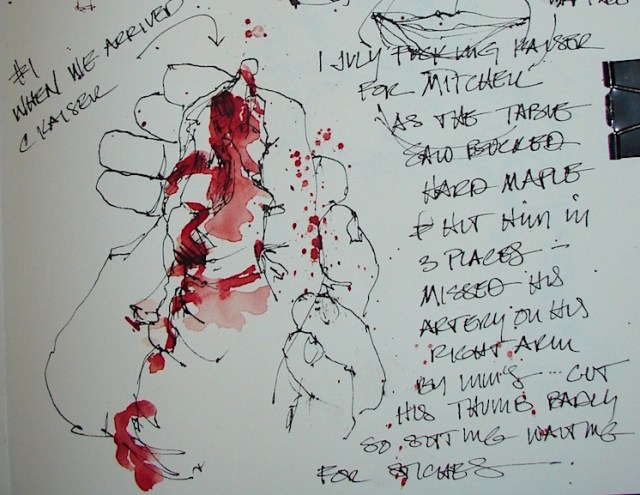 #1
WHEN WE ARRIVED
C KAISER
1 JULY FUCKING KAISER
FOR MITCHELL
AS THE TABLE
SAW BUCKED
HARD MAPLE
& HIT HIM IN
3 PLACES -
MISSED HIS
ARTERY ON HIS
RIGHT ARM
BY MM'S --- CUT
HIS THUMB BADLY
SO SITTING WAITING
FOR STICHES